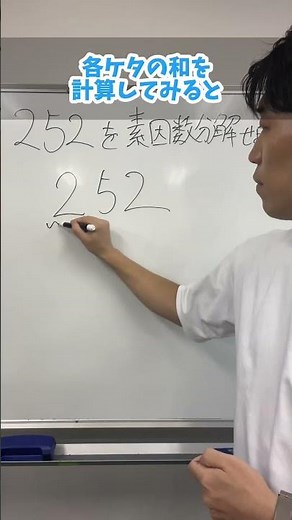 各ケタの和を
計算してみると
252を素因数分解せよ
252